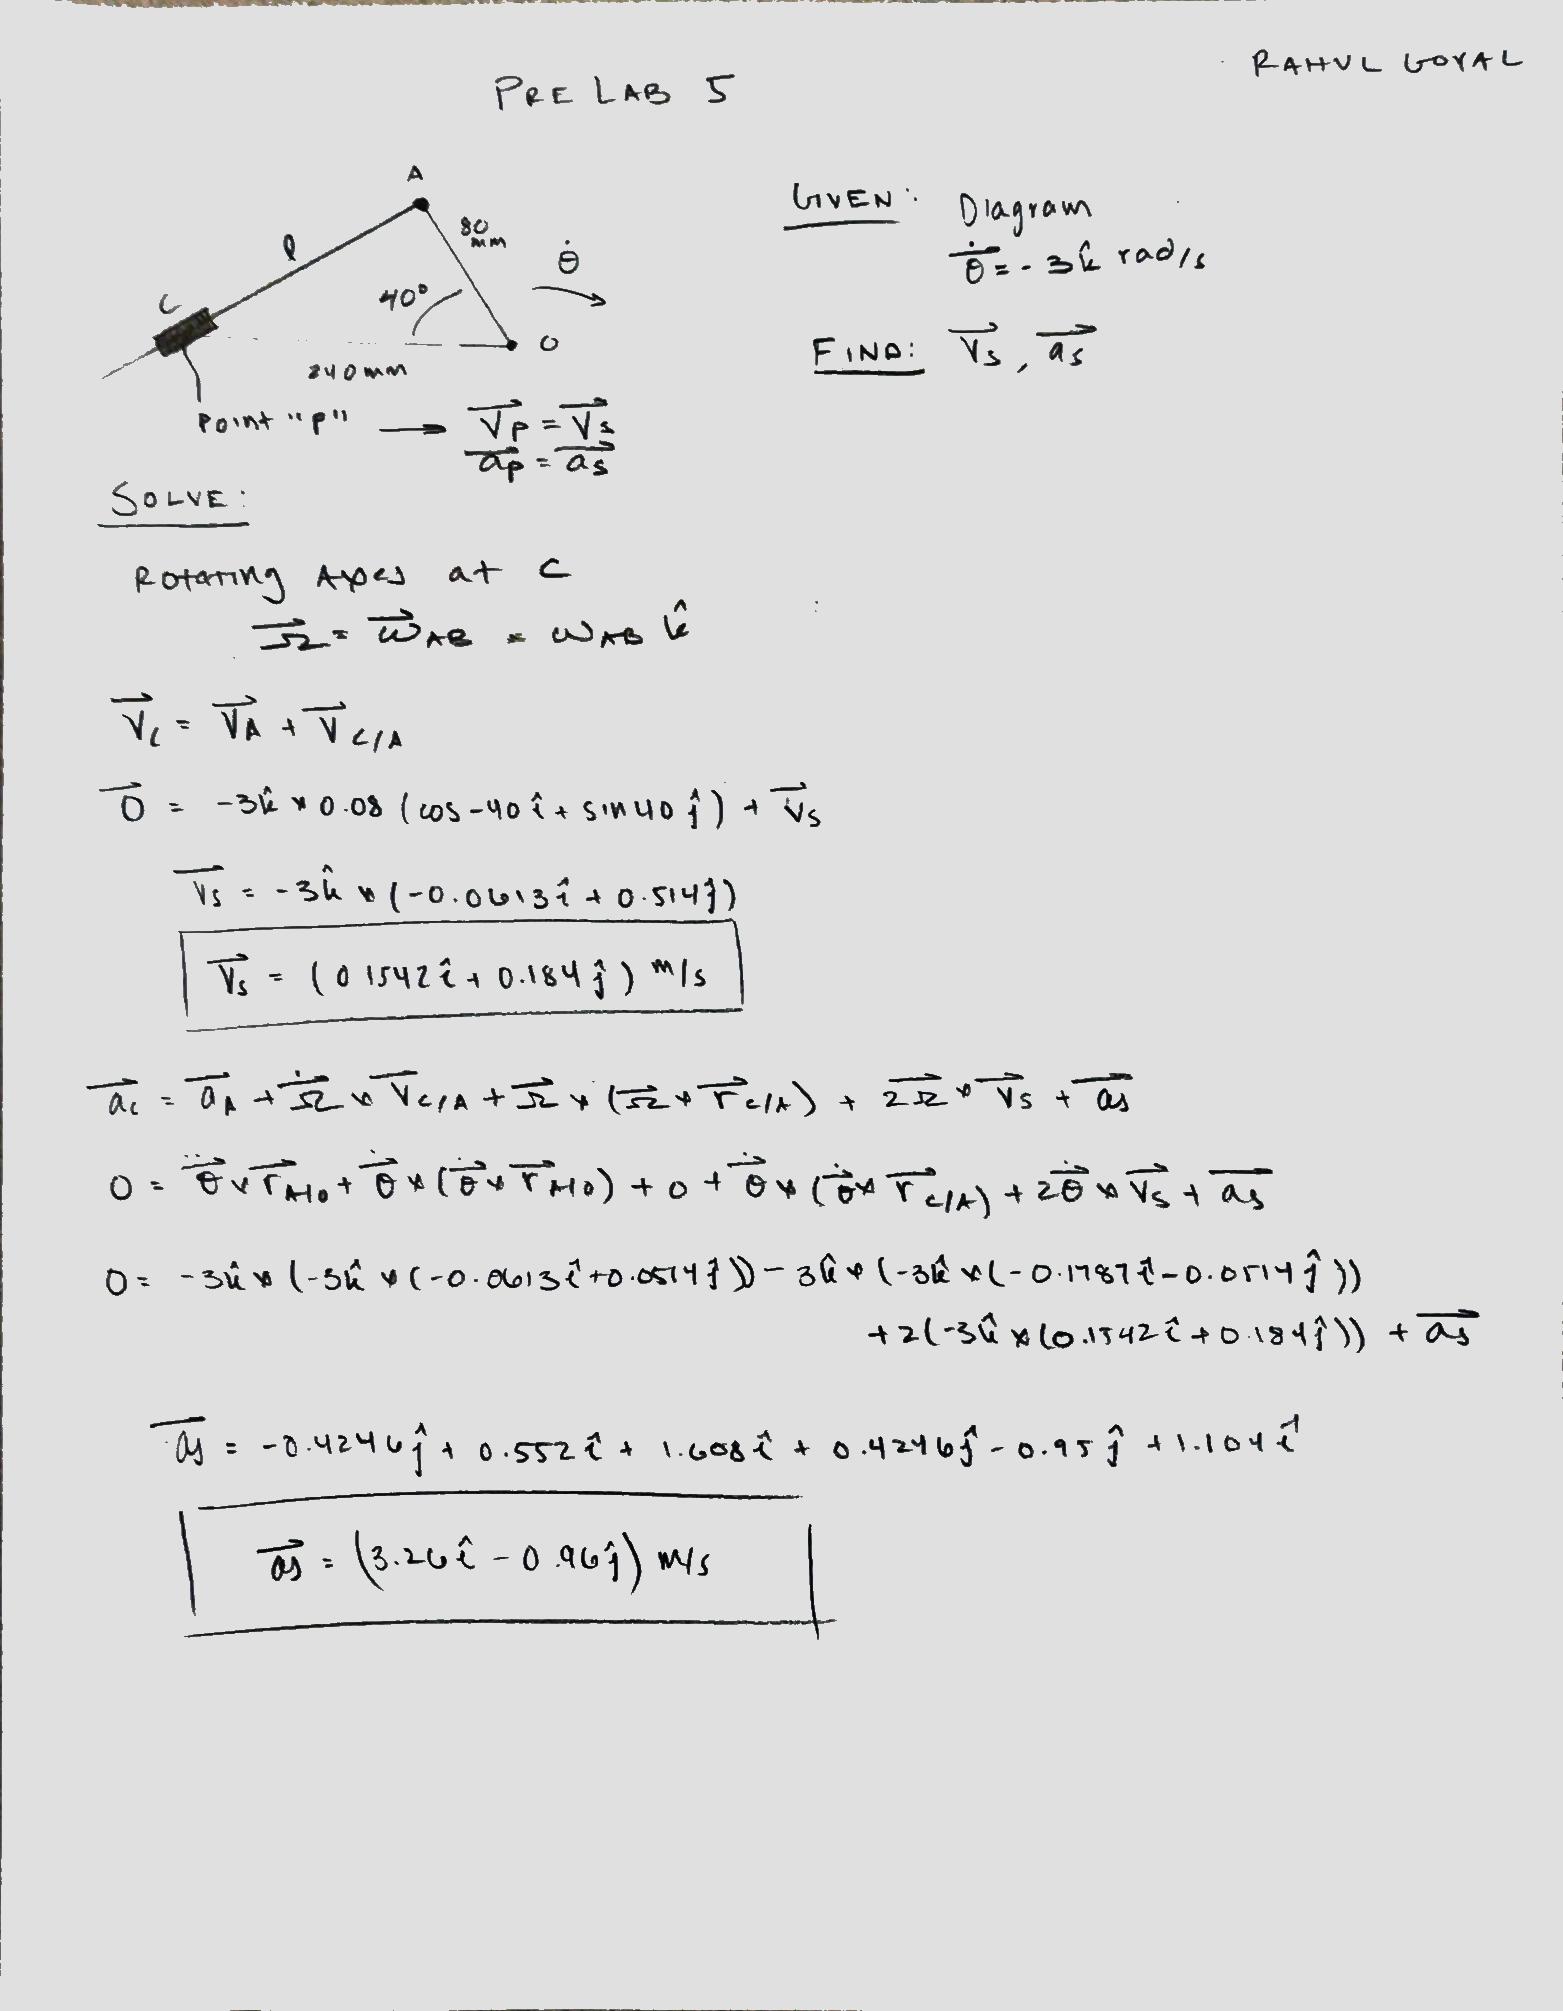 RAHUL GOYAL
PRE LAB 5
A
80
mm
l
θ̇
40°
C
O
240mm
Point "P" → V⃗p = V⃗s
a⃗p = a⃗s
GIVEN: Diagram
θ̇⃗ = -3k̂ rad/s
FIND: V⃗s, a⃗s
SOLVE:
Rotating Axes at C
Ω⃗ = ω⃗AB = ωAB k̂
V⃗c = V⃗A + V⃗C/A
0⃗ = -3k̂ × 0.08 (cos-40 î + sin40 ĵ) + V⃗s
V⃗s = -3k̂ × (-0.0613î + 0.514ĵ)
V⃗s = (0.1542î + 0.184ĵ) m/s
a⃗c = a⃗A + Ω̇⃗ × V⃗C/A + Ω⃗ × (Ω⃗ × r⃗C/A) + 2Ω⃗ × V⃗s + a⃗s
0 = θ̈⃗ × r⃗A/O + θ̇⃗ × (θ̇⃗ × r⃗A/O) + 0 + θ̇⃗ × (θ̇⃗ × r⃗C/A) + 2θ̇⃗ × V⃗s + a⃗s
0 = -3k̂ × (-3k̂ × (-0.0613î + 0.0514ĵ)) - 3k̂ × (-3k̂ × (-0.1787î - 0.0514ĵ))
+ 2(-3k̂ × (0.1542î + 0.184ĵ)) + a⃗s
a⃗s = -0.4246ĵ + 0.552î + 1.608î + 0.4246ĵ - 0.95ĵ + 1.104î
a⃗s = (3.26î - 0.96ĵ) m/s